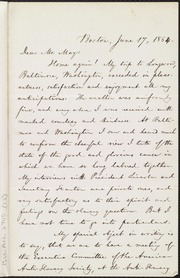 Boston, June 17, 1864.
Dear Mr. May:
Home again! My trip to Longwood,
Baltimore, Washington, exceeded in pleas-
antness, satisfaction and enjoyment all my
anticipations. The weather was uniformly
fine, and every where I was received with
marked cordiality and kindness. At Balti-
more and Washington I was so much to
confirm the cheerful view I take of the
state of the good and glorious cause in
which we have so long labored together.
My interviews with President Lincoln and
Secretary Stanton were private ones, and
very satisfactory as to their spirit and
feelings on the slavery question. But I have
not time to go into particulars.
My special object in writing is
to say, that we are to have a meeting of
the Executive Committee of the American
Anti-Slavery Society, at the Anti-Slavery